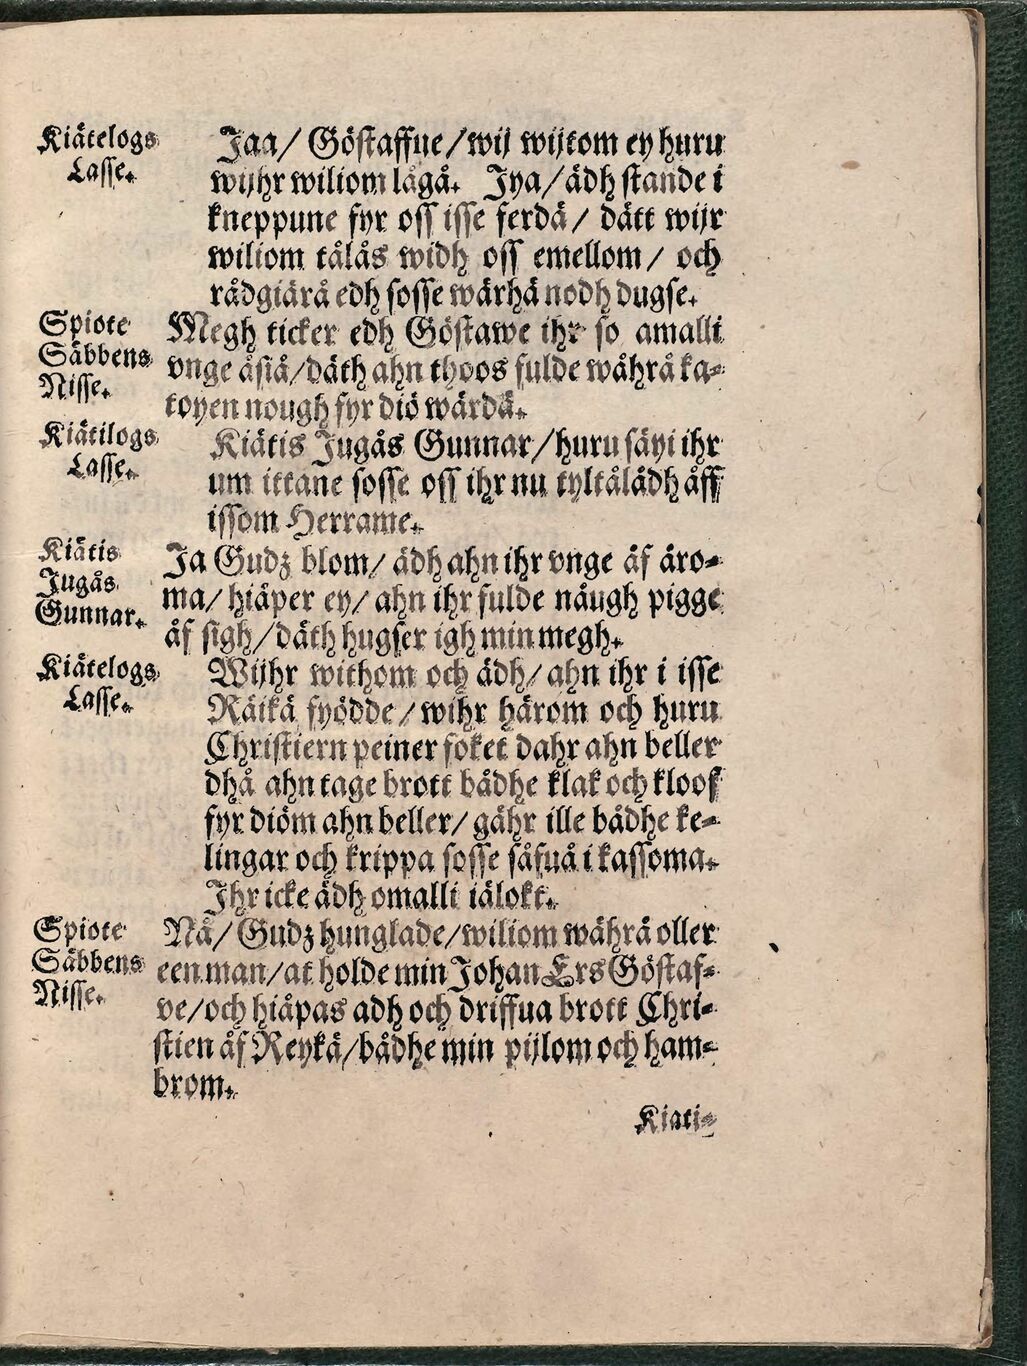 Kiätelogs
Lasse.
Jaa/ Göstaffue/wij wijtom ey huru
wijhr wiliom lågå. Jya/ädh stande i
kneppune fyr oss isse ferdä/ dätt wijr
wiliom tålås widh oss emellom/ och
rådgiärå edh sosse wärhä nodh dugse.
Spiote
Säbbens
Nisse.
Megh ticker edh Göstawe ihr so amalli
vnge åsiå/däth ahn thoos fulde wåhrå ka-
toyen nough fyr diö wärdä.
Kiätilogs
Lasse.
Kiätis Jugås Gunnar/huru säyi ihr
um ittane sosse oss ihr nu tyltålädh åff
issom Herrame.
Kiätis
Jugås
Gunnar.
Ja Gudz blom/ ädh ahn ihr vnge åf äro-
ma/ hiåper ey/ ahn ihr fulde näugh pigge
åf sigh/däth hugser igh min megh.
Kiätelogs
Lasse.
Wijhr withom och ädh/ ahn ihr i isse
Räikä fyödde/ wihr härom och huru
Christiern peiner foket dahr ahn beller
dhå ahn tage brott bådhe klak och kloof
fyr diöm ahn beller/ gåhr ille bådhe ke-
lingar och krippa sosse såfuå i kassoma.
Jhr icke ädh omalli iälokt.
Spiote
Säbbens
Nisse.
Nå/ Gudz hunglade/wiliom währä oller
een man/at holde min Johan Ers Göstaf-
ve/och hiåpas adh och driffua brott Chri-
stien åf Reykä/bådhe min pijlom och ham-
brom.
Kiati-